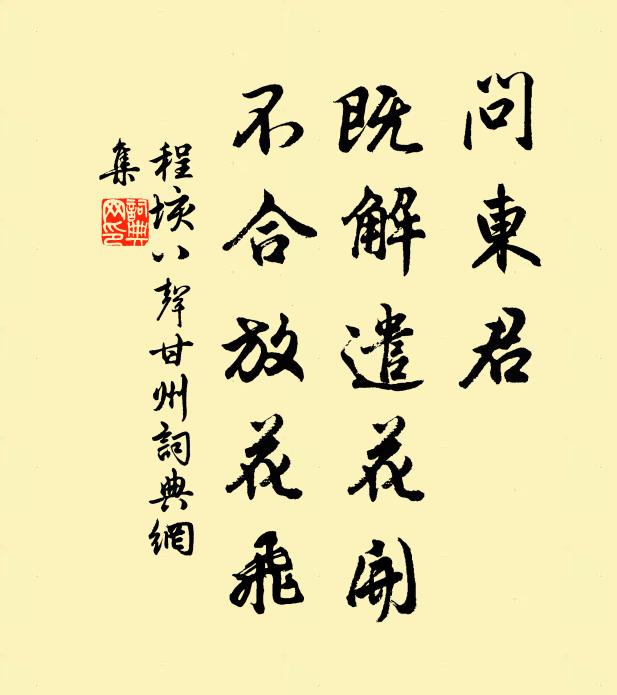 問東君
既解遣花開
不合放花飛
程垓八聲甘州詞典網
集
詞典網印